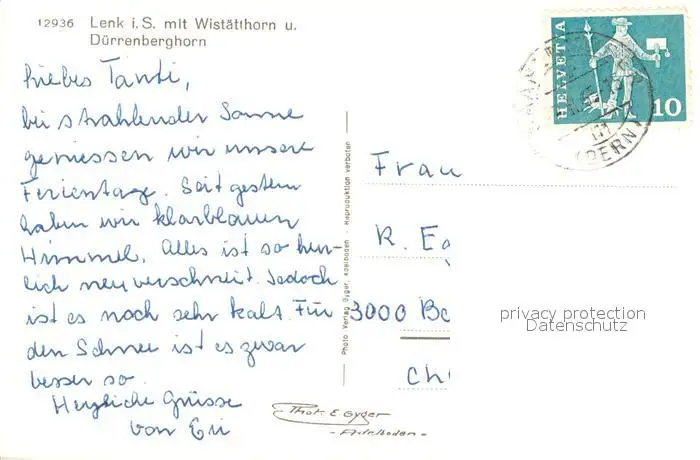 12936 Lenk i. S. mit Wistätthorn u.
Dürrenberghorn
Liebes Tanti,
bei strahlender Sonne
geniessen wir unsere
Ferientage. Seit gestern
haben wir klarblauen
Himmel. Alles ist so herr-
lich neu verschneit. Jedoch
ist es noch sehr kalt. Für
den Schnee ist es zwar
besser so.
Herzliche Grüsse
von
Photo Verlag Gyger, Adelboden - Reproduktion verboten
HELVETIA
10
(BERN)
Frau
R.
3000
privacy protection
Datenschutz
Phot. E Gyger
- Adelboden -